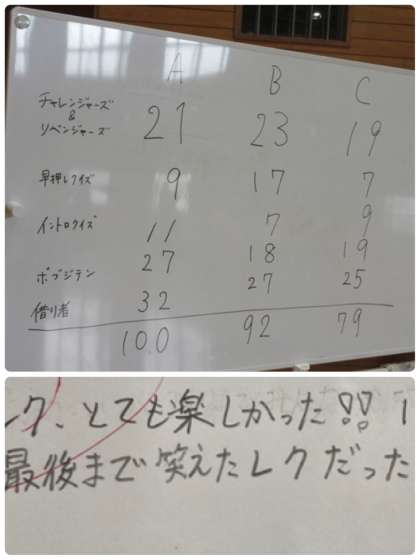 A B C
チャレンジャーズ
&
リベンジャーズ 21 23 19
早押しクイズ 9 17 7
イントロクイズ 11 7 9
ボブジテン 27 18 19
借り者 32 27 25
100 92 79
レク、とても楽しかった!!
最後まで笑えたレクだった